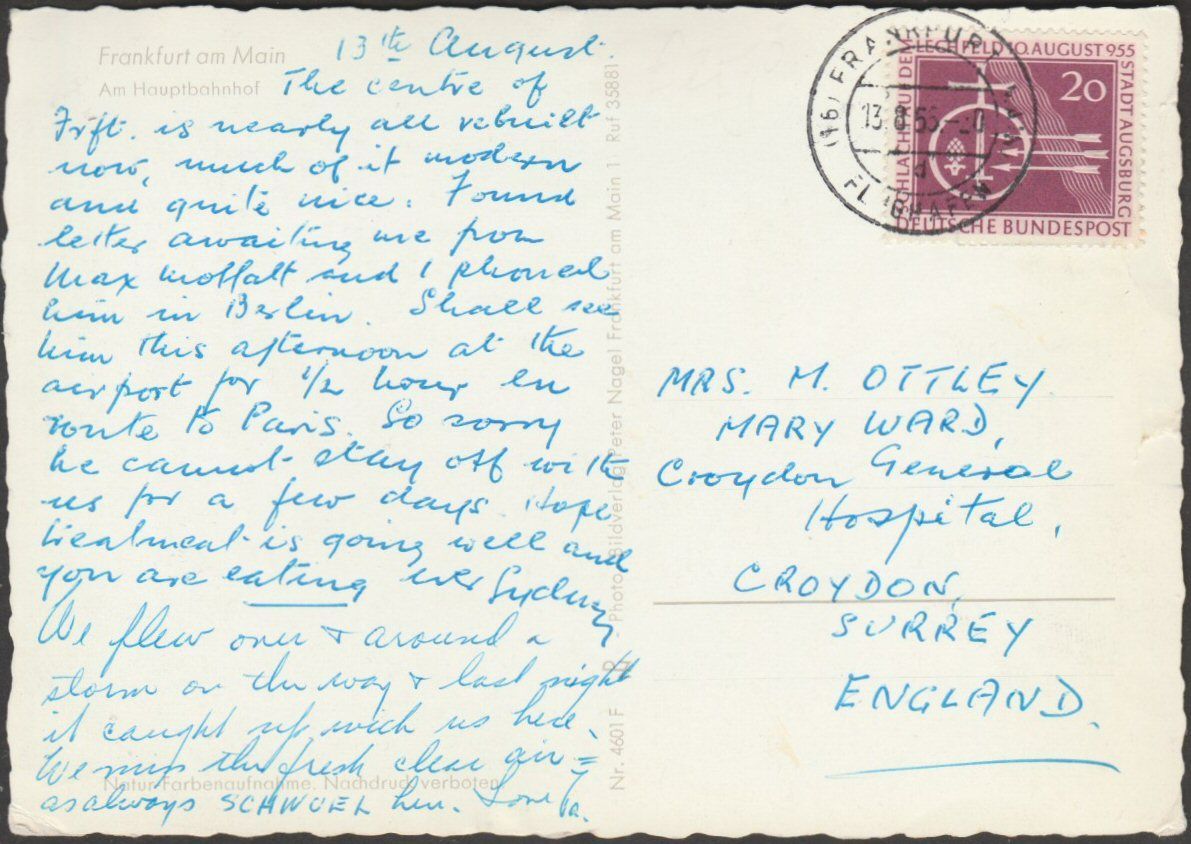 Frankfurt am Main
Am Hauptbahnhof
13th August.
The centre of
Frft. is nearly all rebuilt
now, much of it modern
and quite nice. Found
letter awaiting me from
Max Moffatt and I phoned
him in Berlin. Shall see
him this afternoon at the
airport for 1/2 hour en
route to Paris. So sorry
he cannot stay off with
us for a few days. Hope
treatment is going well and
you are eating Sydney
We flew over & around a
storm on the way & last night
it caught up with us here.
We miss the fresh clear air =
as always SCHWUEL here. Love
Natur-Farbenaufnahme. Nachdruck verboten
Nr. 4601 F - Photo-Bildverlag Peter Nagel Frankfurt am Main 1 Ruf 35881
FRANKFURT
13.8.55.-20
FLUGHAFEN
SCHLACHT AUF DEM LECHFELD 10. AUGUST 955
STADT AUGSBURG
20
DEUTSCHE BUNDESPOST
MRS. M. OTTLEY.
MARY WARD,
Croydon General
Hospital,
CROYDON,
SURREY
ENGLAND.